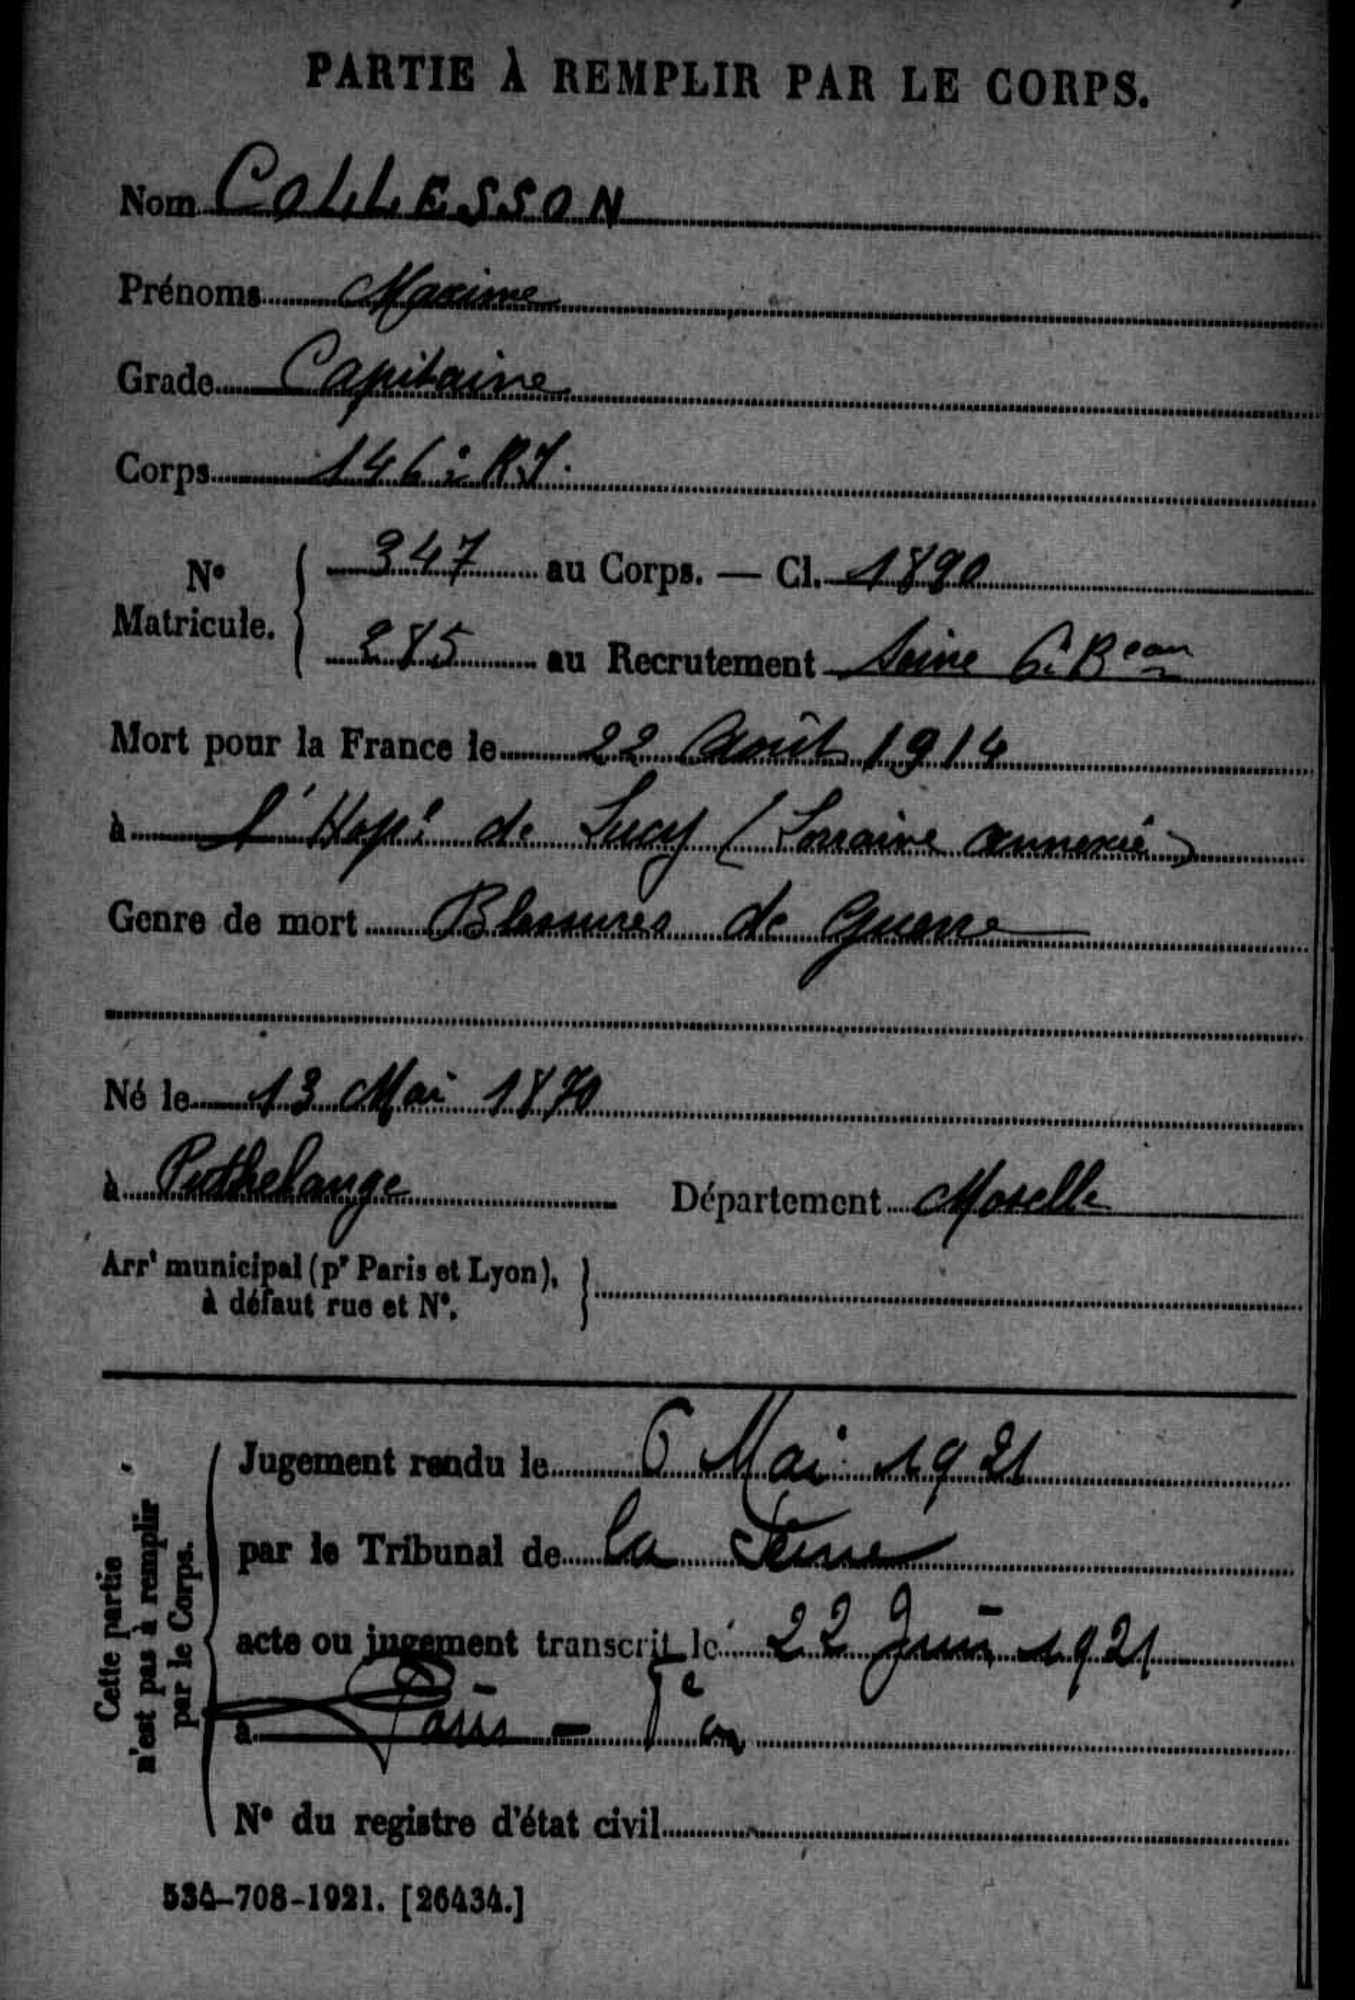 PARTIE À REMPLIR PAR LE CORPS.
Nom COLLESSON
Prénoms Maxime
Grade Capitaine
Corps 146è R.I.
N° Matricule. 347 au Corps. — Cl. 1890
285 au Recrutement Seine 6è Beau
Mort pour la France le 22 Août 1914
à l'Hopl de Lucy (Lorraine annexée)
Genre de mort Blessures de Guerre
Né le 13 Mai 1870
à Puthelange Département Moselle
Arrt municipal (pr Paris et Lyon), à défaut rue et N°.
Cette partie n'est pas à remplir par le Corps.
Jugement rendu le 6 Mai 1921
par le Tribunal de la Seine
acte ou jugement transcrit le 22 Juin 1921
à Paris -
N° du registre d'état civil
534-708-1921. [26434.]